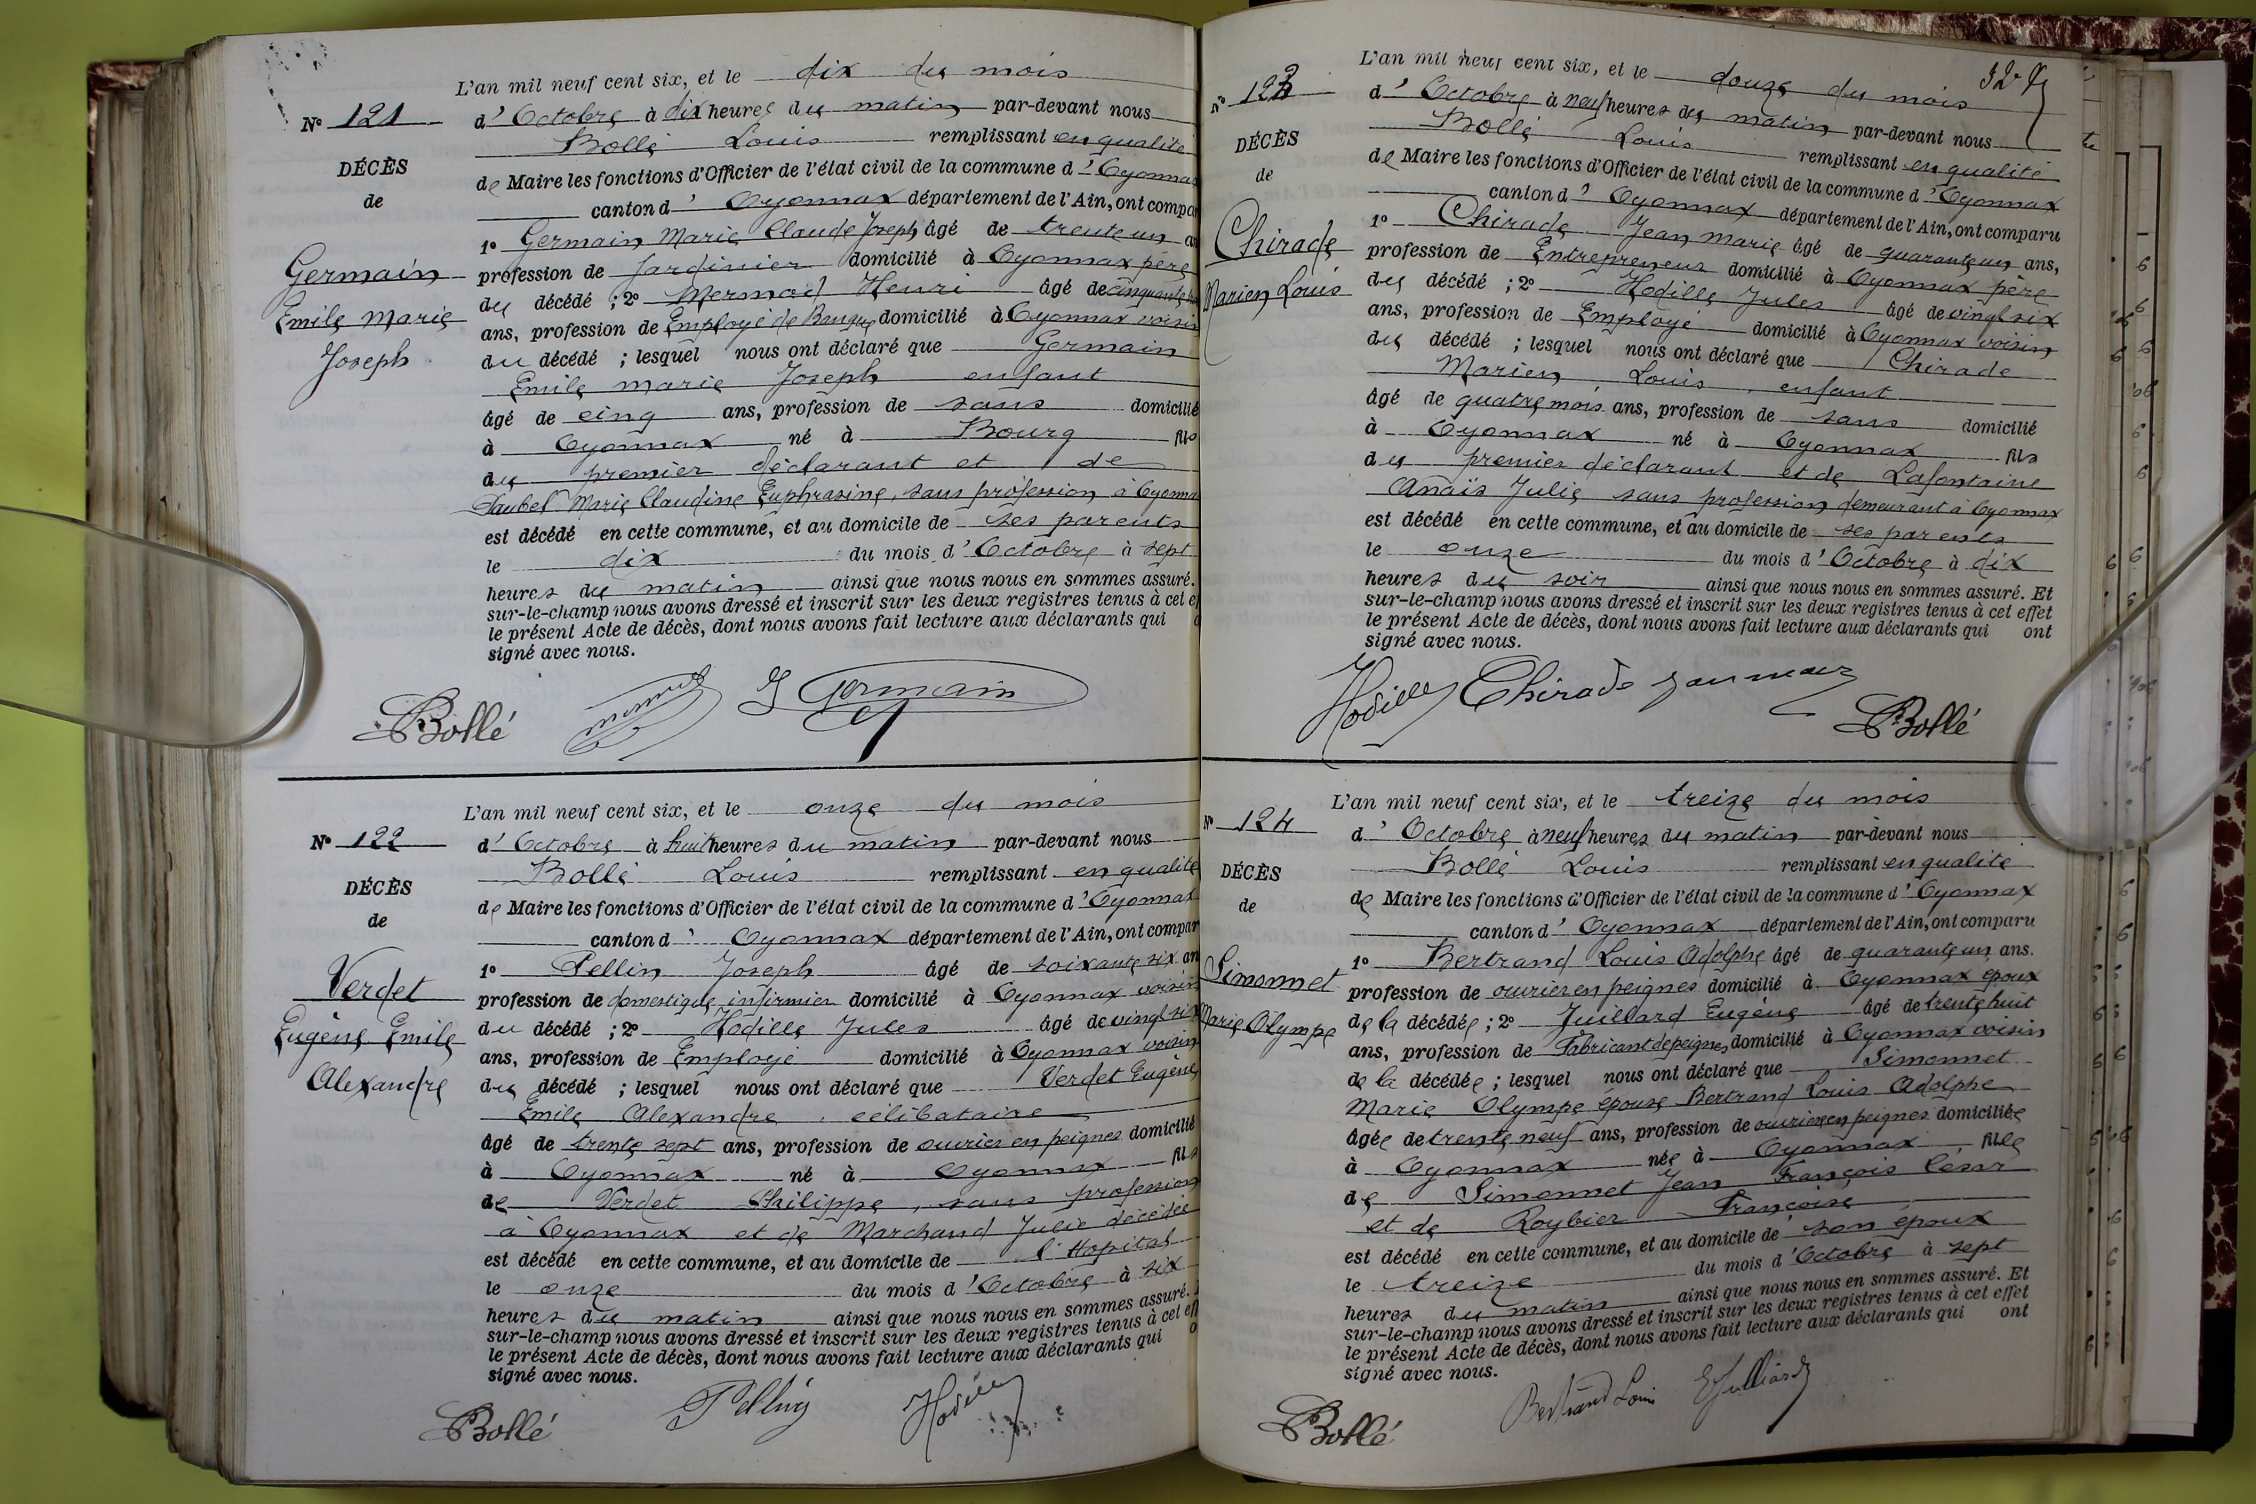 L'an mil neuf cent six, et le dix du mois
N° 121
d'Octobre à dix heures du matin par-devant nous
Bollé Louis remplissant en qualité
DÉCÈS
de Maire les fonctions d'Officier de l'état civil de la commune d'Oyonnax
de
canton d'Oyonnax département de l'Ain, ont compa
1° Germain Marie Claude Joseph âgé de trente un an
Germain
profession de Jardinier domicilié à Oyonnax père
du décédé ; 2° Mermod Henri âgé de cinquante
Emile Marie
ans, profession de Employé de Banque domicilié à Oyonnax voisin
Joseph
du décédé ; lesquel nous ont déclaré que Germain
Emile Marie Joseph enfant
âgé de cinq ans, profession de sans domicilié
à Oyonnax né à Bourg fils
du premier déclarant et de
Marie Claudine Euphrasine, sans profession à Oyonnax
est décédé en cette commune, et au domicile de ses parents
le dix du mois d'Octobre à sept
heures du matin ainsi que nous nous en sommes assuré.
sur-le-champ nous avons dressé et inscrit sur les deux registres tenus à cet ef
le présent Acte de décès, dont nous avons fait lecture aux déclarants qui o
signé avec nous.
Bollé J Germain
L'an mil neuf cent six, et le onze du mois
N° 122
d'Octobre à huit heures du matin par-devant nous
Bollé Louis remplissant en qualité
DÉCÈS
de Maire les fonctions d'Officier de l'état civil de la commune d'Oyonnax
de
canton d'Oyonnax département de l'Ain, ont compar
Verdet
1° Pellin Joseph âgé de soixante six an
profession de domestique infirmier domicilié à Oyonnax voisin
Eugène Emile
du décédé ; 2° Hodille Jules âgé de vingt six
ans, profession de Employé domicilié à Oyonnax voisin
Alexandre
du décédé ; lesquel nous ont déclaré que Verdet Eugène
Emile Alexandre, célibataire
âgé de trente sept ans, profession de ouvrier en peignes domicilié
à Oyonnax né à Oyonnax fils
de Verdet Philippe, sans profession
à Oyonnax et de Marchand Julie décédée
est décédé en cette commune, et au domicile de l'Hopital
le onze du mois d'Octobre à six
heures du matin ainsi que nous nous en sommes assuré.
sur-le-champ nous avons dressé et inscrit sur les deux registres tenus à cet eff
le présent Acte de décès, dont nous avons fait lecture aux déclarants qui o
signé avec nous.
Bollé Pellin Hodille
L'an mil neuf cent six, et le douze du mois
N° 123
d'Octobre à neuf heures du matin par-devant nous
Bollé Louis remplissant en qualité
DÉCÈS
de Maire les fonctions d'Officier de l'état civil de la commune d'Oyonnax
de
canton d'Oyonnax département de l'Ain, ont comparu
1° Chirade Jean Marie âgé de quarante un ans,
Chirade
profession de Entrepreneur domicilié à Oyonnax père
Marien Louis
du décédé ; 2° Hodille Jules âgé de vingt six
ans, profession de Employé domicilié à Oyonnax voisin
du décédé ; lesquel nous ont déclaré que Chirade
Marien Louis, enfant
âgé de quatre mois ans, profession de sans domicilié
à Oyonnax né à Oyonnax fils
du premier déclarant et de Lafontaine
Anaïs Julie sans profession demeurant à Oyonnax
est décédé en cette commune, et au domicile de ses parents
le onze du mois d'Octobre à dix
heures du soir ainsi que nous nous en sommes assuré. Et
sur-le-champ nous avons dressé et inscrit sur les deux registres tenus à cet effet
le présent Acte de décès, dont nous avons fait lecture aux déclarants qui ont
signé avec nous.
Hodille Chirade Bollé
L'an mil neuf cent six, et le treize du mois
N° 124
d'Octobre à neuf heures du matin par-devant nous
Bollé Louis remplissant en qualité
DÉCÈS
de Maire les fonctions d'Officier de l'état civil de la commune d'Oyonnax
de
canton d'Oyonnax département de l'Ain, ont comparu
1° Bertrand Louis Adolphe âgé de quarante un ans.
Simonnet
profession de ouvrier en peignes domicilié à Oyonnax époux
Marie Olympe
de la décédée ; 2° Juillard Eugène âgé de trente huit
ans, profession de Fabricant de peignes domicilié à Oyonnax voisin
de la décédée ; lesquel nous ont déclaré que Simonnet
Marie Olympe épouse Bertrand Louis Adolphe
âgée de trente neuf ans, profession de ouvrière en peignes domiciliée
à Oyonnax née à Oyonnax fille
de Simonnet Jean François César
et de Roybier Françoise
est décédé en cette commune, et au domicile de son époux
le treize du mois d'Octobre à sept
heures du matin ainsi que nous nous en sommes assuré. Et
sur-le-champ nous avons dressé et inscrit sur les deux registres tenus à cet effet
le présent Acte de décès, dont nous avons fait lecture aux déclarants qui ont
signé avec nous.
Bollé Bertrand Louis E Juillard